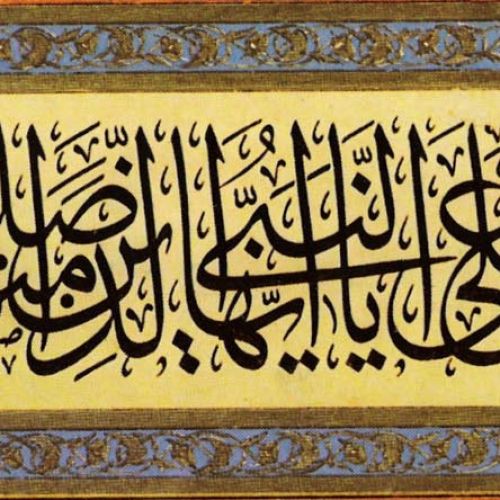 على النبي يا ايها الذين امنوا صلوا